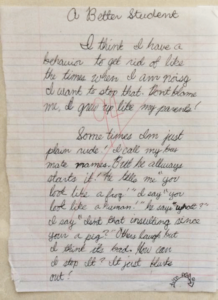 A Better Student
I think I have a
behavior to get rid of like
the times when I am noisy
I want to stop that. Dont blame
me, I grew up like my parents!
Some times Im just
plain rude. I call my bus
mate names. But he allways
starts it! He tells me "you
look like a frog" I say "you
look like a human!" he says
I say "Isnt that insulting since
your a pig?" Others laugh but
I think its bad. How can
I stop it? It just blurts
out!